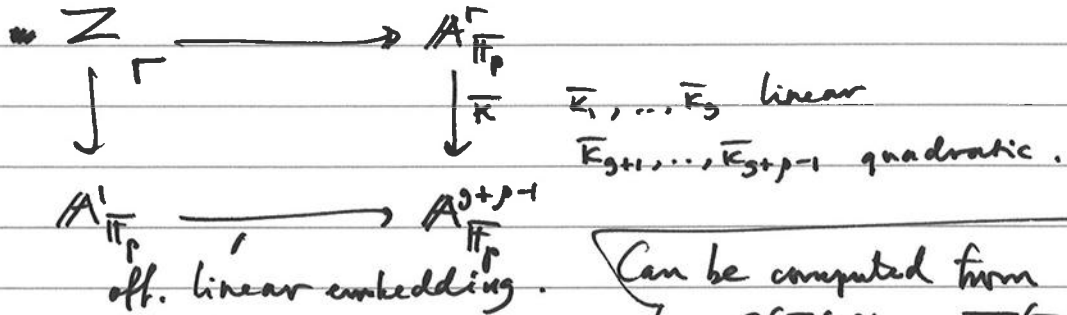 Z ⟶ 𝔸^r_{𝔽_p}
κ̄ κ̄_1, ..., κ̄_g linear
κ̄_{g+1}, ..., κ̄_{g+ρ-1} quadratic.
𝔸^1_{𝔽_p} ⟶ 𝔸^{g+ρ-1}_{𝔽_p}
aff. linear embedding. Can be computed from